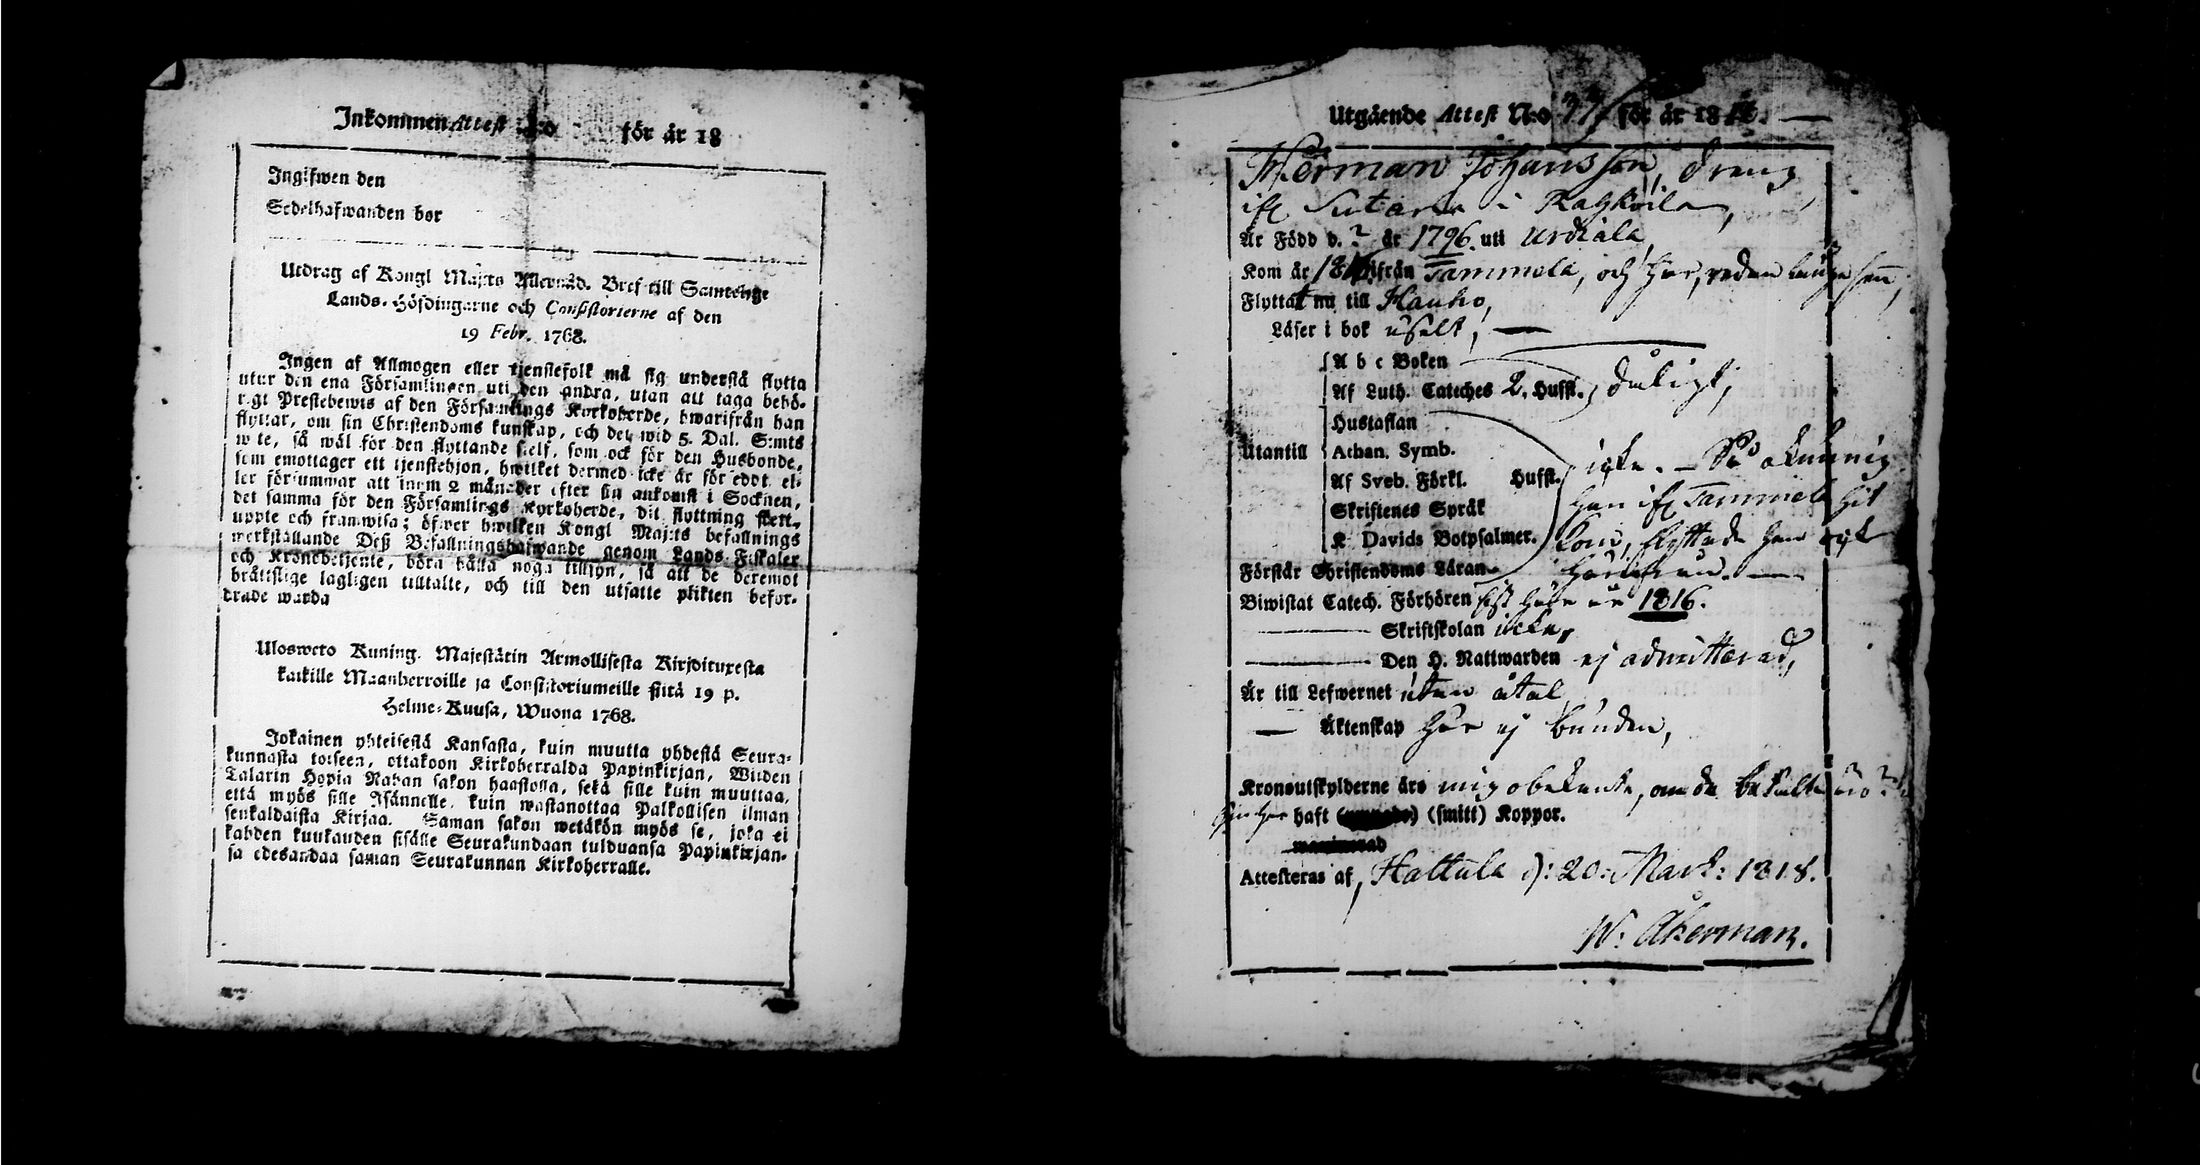 Inkommen Attest N:o för år 18
Ingifwen den
Sedelhafwanden bor
Utdrag af Kongl Maj:ts Allernåd. Bref till Samtelige
Lands-Höfdingarne och Consistorierne af den
19 Febr. 1768.
Ingen af Allmogen eller tjenstefolk må sig understå flytta
utur den ena Församlingen uti den andra, utan att taga behö-
rigt Prestebewis af den Församlings Kyrkoherde, hwarifrån han
flyttar, om sin Christendoms kunskap, och det wid 5. Dal. S:mts
wite, så wäl för den flyttande sielf, som ock för den Husbonde,
som emottager ett tjenstehjon, hwilket dermed icke är förseddt, el-
ler försummar att inom 2 månader efter sin ankomst i Socknen,
det samma för den Församlings Kyrkoherde, dit flyttning skett,
uppte och framwisa; öfwer hwilken Kongl Maj:ts befallnings
werkställande Deß Befallningshafwande genom Lands-Fiskaler
och Kronobetjente, böra hålla noga tillsyn, så att de deremot
bråttslige lagligen tilltalte, och till den utsatte plikten befor-
drade warda
Ulosweto Kuning. Majestätin Armollisesta Kirjoituxesta
kaikille Maanherroille ja Consistoriumeille siitä 19 p.
Helme-Kuusa, Wuona 1768.
Jokainen yhteisestä Kansasta, kuin muutta yhdestä Seura-
kunnasta toiseen, ottakoon Kirkoherralda Papinkirjan, Wiiden
Talarin Hopia Rahan sakon haastolla, sekä sille kuin muuttaa,
että myös sille Isännelle, kuin wastanottaa Palkollisen ilman
senkaldaista Kirjaa. Saman sakon wetäkön myös se, joka ei
kahden kuukauden sisälle Seurakundaan tulduansa Papinkirjan-
sa edesandaa saman Seurakunnan Kirkoherralle.
Utgående Attest N:o för år 1818.
Herman Johansson, dreng
ifr Sutari i Rahkoila,
Är Född d. ? år 1796. uti Urdiala
Kom år ifrån Tammela, och har, redan länge sen,
Flyttat nu till Hauho,
Läser i bok uselt,
A b c Boken
Af Luth. Cateches 2. Hufst. dåligt,
Hustaflan
Utantill Athan. Symb. icke. – Så okunnig
Af Sveb. Förkl. Hufst. han ifr Tammela hit
Skriftenes Språk
K Davids Botpsalmer. kom, flyttade han ock
Förstår Christendoms Läran härifrån.
Biwistat Catech. Förhören sist här är 1816.
Skriftskolan icke,
Den H. Nattwarden ej admitterad,
Är till Lefwernet utan åtal
Äktenskap här ej bunden,
Kronoutskylderne äro mig obekante, om de betalte äro?
haft (smitt) Koppor.
Attesteras af, Hattula d: 20: Mart: 1818.
W: Åkerman.